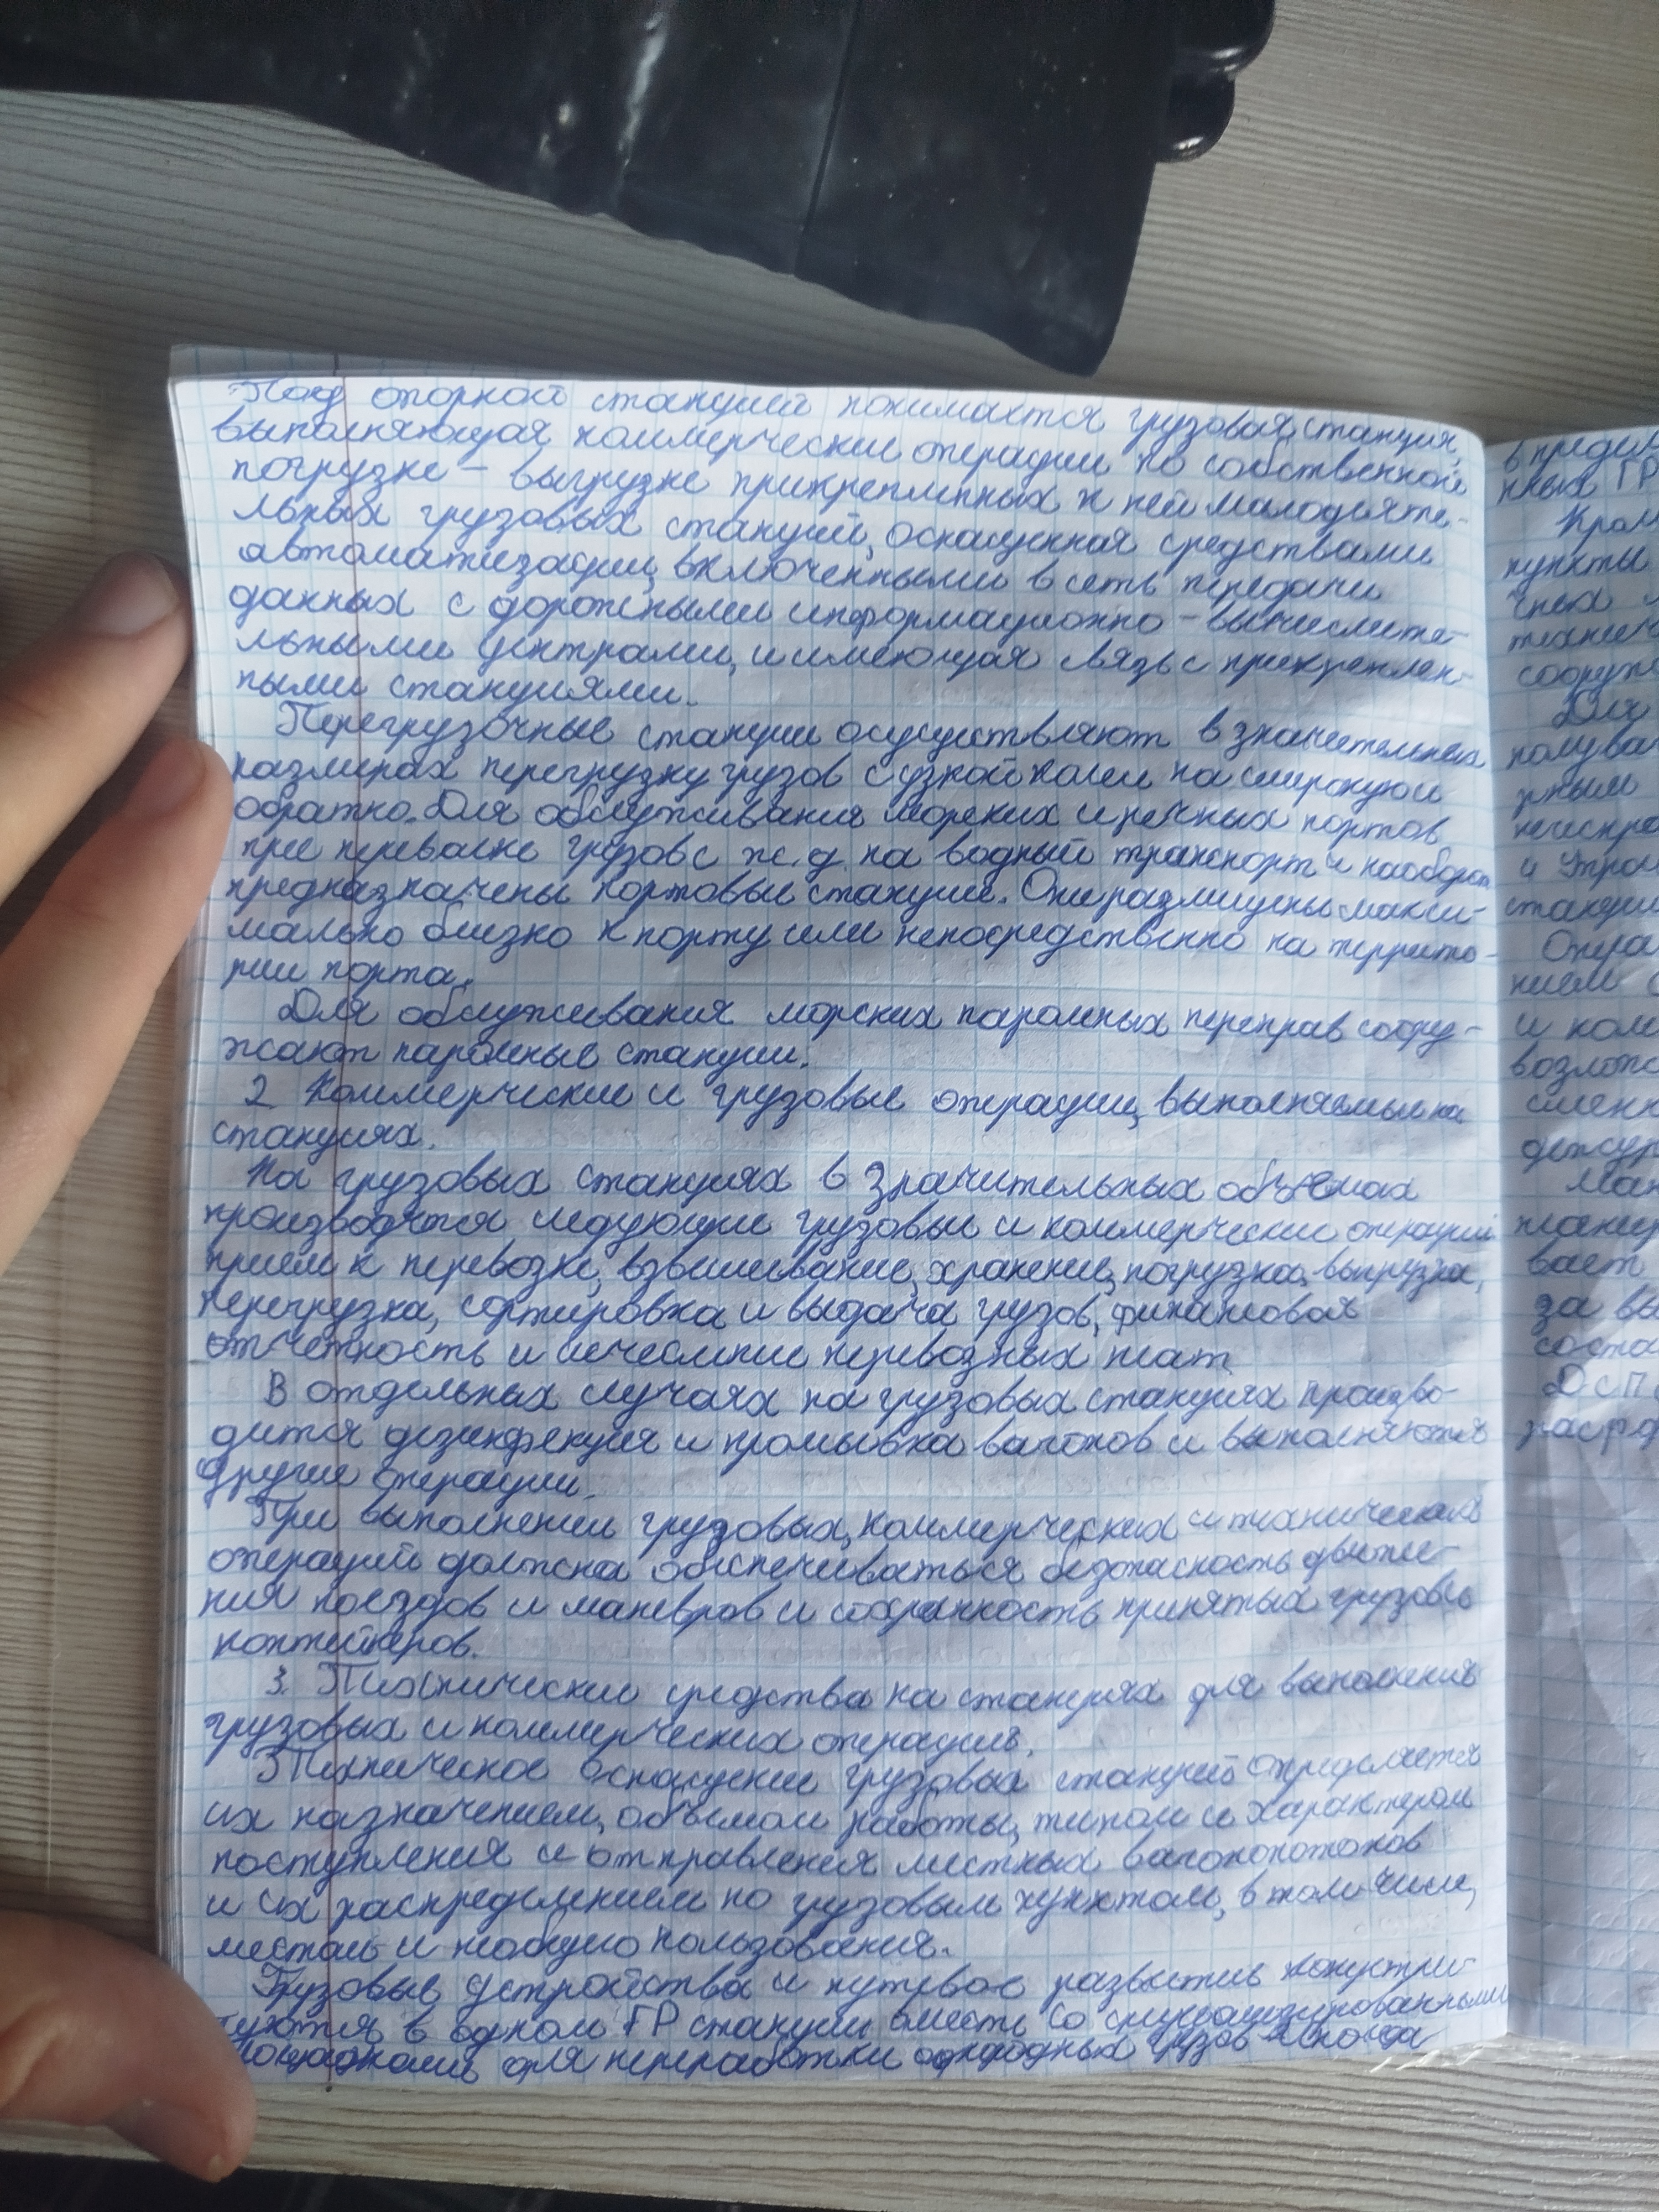 Под опорной станцией понимается грузовая станция,
выполняющая коммерческие операции по собственной
погрузке - выгрузке прикрепленных к ней малодеяте-
льных грузовых станций, оснащенная средствами
автоматизации, включенными в сеть передачи
данных с дорожными информационно - вычислите-
льными центрами, и имеющая связь с прикреплен-
ными станциями.
Перегрузочные станции осуществляют в значительных
размерах перегрузку грузов с узкой колеи на широкую и
обратно. Для обслуживания морских и речных портов
при перевалке грузов с ж.д. на водный транспорт и наоборот
предназначены портовые станции. Они размещены макси-
мально близко к порту или непосредственно на террито-
рии порта.
Для обслуживания морских паромных переправ соору-
жают паромные станции.
2. Коммерческие и грузовые операции, выполняемые на
станциях.
На грузовых станциях в значительных объемах
производятся следующие грузовые и коммерческие операции
прием к перевозке, взвешивание, хранение, погрузка, выгрузка,
перегрузка, сортировка и выдача грузов, финансовая
отчетность и исчесление перевозных плат
В отдельных случаях на грузовых станциях произво-
дится дезинфекция и промывка вагонов и выполняются
другие операции.
При выполнении грузовых, коммерческих и технических
операций должна обеспечиваться безопасность движе-
ния поездов и маневров и сохранность принятых грузов
контейнеров.
3. Технические средства на станциях для выполнения
грузовых и коммерческих операций.
Техническое оснащение грузовых станций определяется
их назначением, объемом работы, типом и характером
поступления и отправления местных вагонопотоков
и их распределением по грузовым пунктам, в том числе,
местам и необщего пользования.
Грузовые устройства и путевое развитие
в одном ГР станции вместе со специализированными
площадками для переработки однородных грузов
в предел
нных ГР
Кром
пункты
сооруж
Для
полува
рным
неиспра
станции
Опера
нием с
и ком
Ман
вает
за вы
соста
ДСП